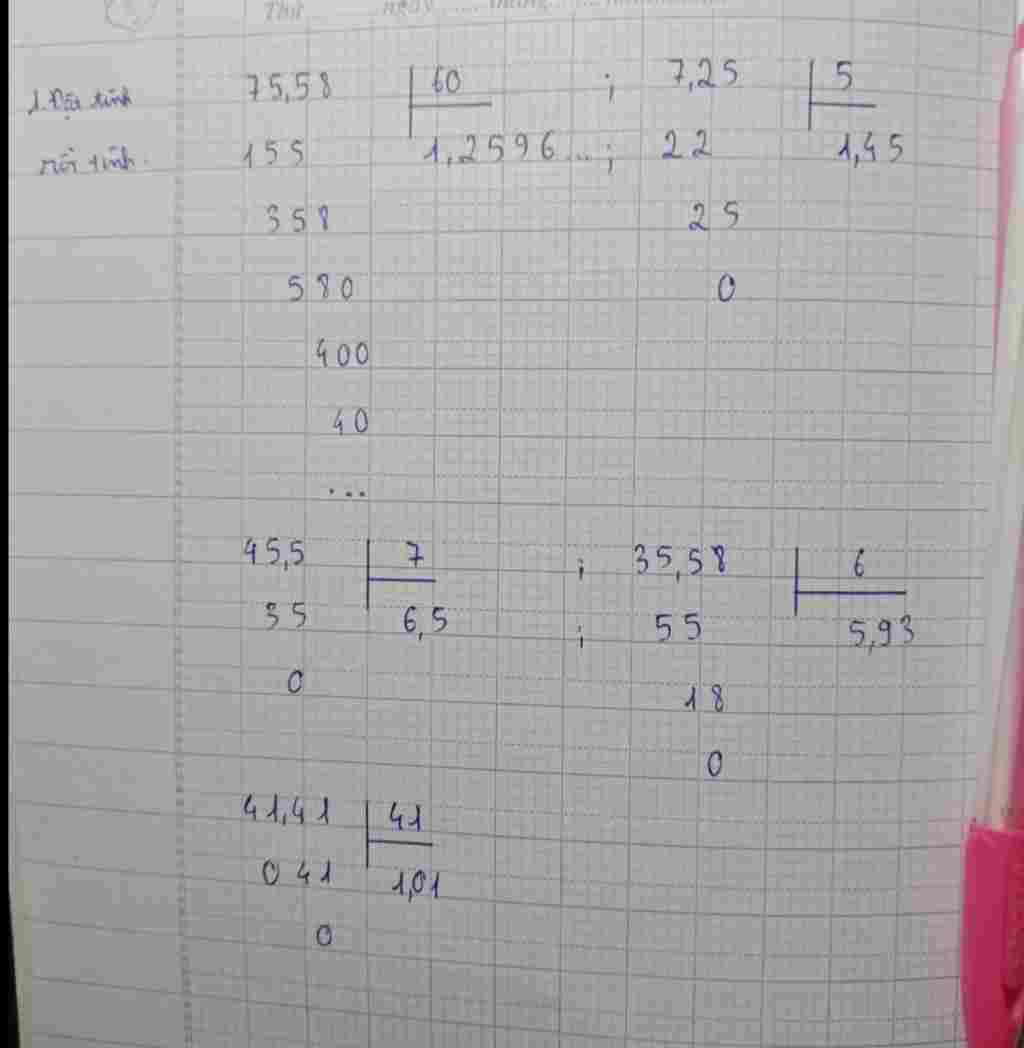 Thứ ngày ... tháng ...
1. Đặt tính 75,58 60 ; 7,25 5
rồi tính. 155 1,2596...; 22 1,45
358 25
580 0
400
40
...
45,5 7 ; 35,58 6
35 6,5 ; 55 5,93
0 18
0
41,41 41
041 1,01
0